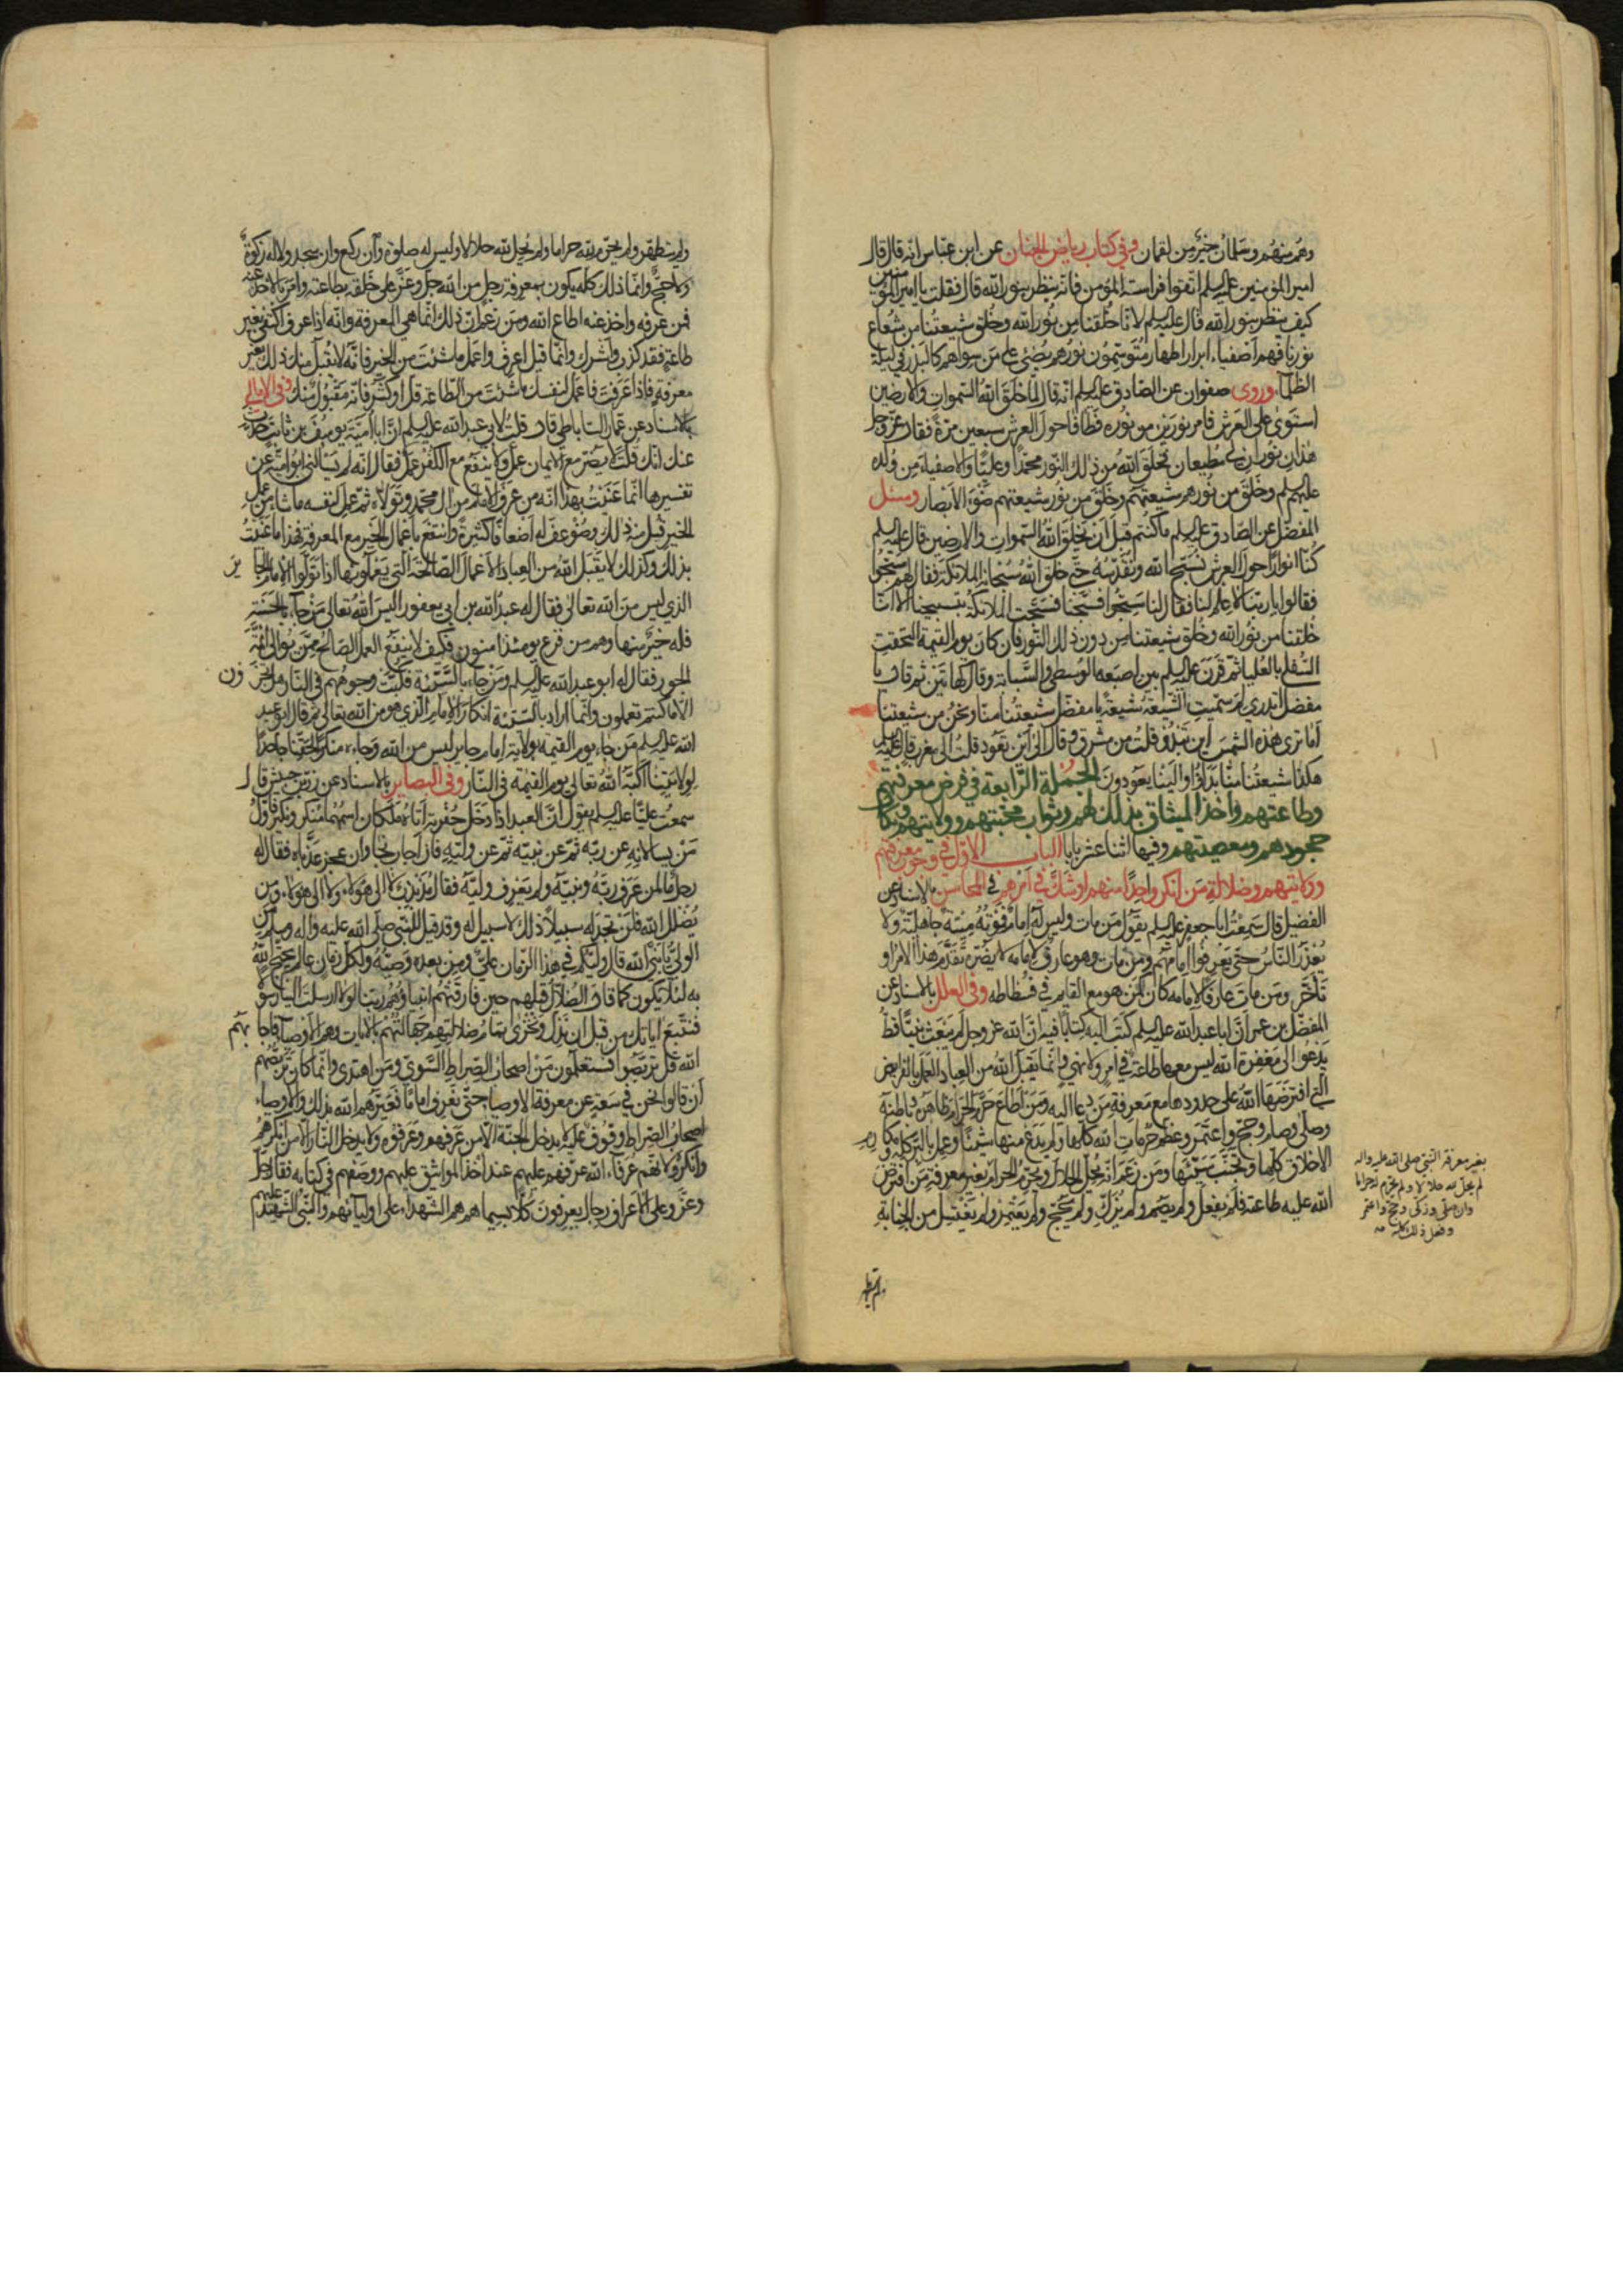 وهم منهم وسلمان خير من لقمان وفي كتاب رياض الجنان عن ابن عباس انه قال قال
امير المؤمنين عليه السلم اتقوا فراسة المؤمن فانه ينظر بنور الله قال فقلت يا امير المؤمنين
كيف ينظر بنور الله قال عليه السلم لانا خلقنا من نور الله وخلق شيعتنا من شعاع
نورنا فهم اصفياء ابرار اطهار متوسمون نورهم يضئ على من سواهم كالبدر في ليلة
الظلماء وروى صفوان عن الصادق عليه السلم انه قال لما خلق الله السموات والارضين
استوى على العرش فامر نورين من نوره فطافا حول العرش سبعين مرة فقال عز وجل
هذان نوران لي مطيعان فخلق الله من ذلك النور محمدا وعليا والاصفياء من ولده
عليهم السلم وخلق من نورهم شيعتهم وخلق من نور شيعتهم ضوء الابصار وسئل
المفضل عن الصادق عليه السلم ما كنتم قبل ان يخلق الله السموات والارضين قال عليه السلم
كنا انوارا حول العرش نسبح الله ونقدسه حتى خلق الله سبحانه الملائكة فقال لهم سبحوا
فقالوا يا ربنا لا علم لنا فقال لنا سبحوا فسبحنا فسبحت الملائكة بتسبيحنا الا انا
خلقنا من نور الله وخلق شيعتنا من دون ذلك النور فان كان يوم القيمة التحقت
السفلى بالعليا ثم قرن عليه السلم بين اصبعه الوسطى والسبابة وقال كهاتين ثم قال يا
مفضل اتدري لم سميت الشيعة شيعة يا مفضل شيعتنا منا ونحن من شيعتنا
اما ترى هذه الشمس اين تبدو قلت من مشرق وقال الى اين تعود قلت الى مغرب قال عليه السلم
هكذا شيعتنا منا بدأوا والينا يعودون الجملة الرابعة في فرض معرفتهم
وطاعتهم واخذ الميثاق بذلك لهم وثواب محبتهم وولايتهم
جحودهم ومعصيتهم وفيها اثنا عشر بابا الباب الاول في وجوب معرفتهم
وولايتهم وضلالة من انكر واحدا منهم او شك في امرهم في المحاسن بالاسناد عن
الفضيل قال سمعت ابا جعفر عليه السلم يقول من مات وليس له امام فموته ميتة جاهلية ولا
يعذر الناس حتى يعرفوا امامهم ومن مات وهو عارف لامامه لا يضره تقدم هذا الامر او
تأخر ومن مات عارفا لامامه كان كمن هو مع القايم في فسطاطه وفي العلل بالاسناد عن
المفضل بن عمر ان ابا عبدالله عليه السلم كتب اليه كتابا فيه ان الله عز وجل لم يبعث نبيا قط
يدعوا الى معرفة الله ليس معها طاعة في امر ولا نهي وانما يقبل الله من العباد العمل بالفرايض
التي افترضها الله على حدودها مع معرفة من دعا اليه ومن اطاع حرم الحرام ظاهره وباطنه
وصلى وصام وحج واعتمر وعظم حرمات الله كلها ولم يدع منها شيئا وعمل بالبر كله ومكارم
الاخلاق كلها وتجنب سيئها ومن زعم انه يحل الحلال ويحرم الحرام بغير معرفة من افترض
الله عليه طاعته فلم يفعل ولم يصم ولم يزك ولم يحج ولم يعتمر ولم يغتسل من الجنابة
بغير معرفة النبي صلى الله عليه واله
لم يحل لله حلالا ولم يحرم له حراما
وان صلى وزكى وحج واعتمر
وفعل ذلك كله
ولم يتطهر
ولم يتطهر ولم يحرم لله حراما ولم يحل لله حلالا وليس له صلوة وان ركع وان سجد ولا له زكوة
ولا حج وانما ذلك كله يكون بمعرفة رجل من الله جل وعز على خلقه بطاعته وامر بالاخذ عنه
فمن عرفه واخذ عنه اطاع الله ومن زعم ان ذلك انما هي المعرفة وانه اذا عرف اكتفى بغير
طاعة فقد كذب واشرك وانما قيل اعرف واعمل ما شئت من الخير فانه لا يقبل منك ذلك بغير
معرفة فاذا عرفت فاعمل لنفسك ما شئت من الطاعة قل او كثر فانه مقبول منك وفي الامالي
بالاسناد عن عمار الساباطي قال قلت لابي عبدالله عليه السلم ان ابا امية يوسف بن ثابت حدث
عنك انك قلت لا يضر مع الايمان عمل ولا ينفع مع الكفر عمل فقال انه لم يسألني ابو امية عن
تفسيرها انما عنيت بهذا انه من عرف الامام من ال محمد وتولاه ثم عمل لنفسه ما شاء من عمل
الخير قبل منه ذلك وضوعف له اضعافا كثيرة وانتفع باعمال الخير مع المعرفة فهذا ما عنيت
بذلك وكذلك لا يقبل الله من العباد الاعمال الصالحة التي يعملونها اذا تولوا الامام الجاير
الذي ليس من الله تعالى فقال له عبدالله بن ابي يعفور اليس الله تعالى من جاء بالحسنة
فله خير منها وهم من فزع يومئذ امنون فكيف لا ينفع العمل الصالح ممن يوالي ائمة
الجور فقال له ابو عبدالله عليه السلم ومن جاء بالسيئة فكبت وجوههم في النار هل تجزون
الا ما كنتم تعملون وانما اراد بالسيئة انكار الامام الذي هو من الله تعالى ثم قال ابو عبد
الله عليه السلم من جاء يوم القيمة بولاية امام جاير ليس من الله وجاء منكرا لحقنا جاحدا
لولايتنا اكبه الله تعالى يوم القيمة في النار وفي البصاير بالاسناد عن زر بن حبيش قال
سمعت عليا عليه السلم يقول ان العبد اذا دخل حفرته اتاه ملكان اسمهما منكر ونكير فاول
من يسالانه عن ربه ثم عن نبيه ثم عن وليه فان اجاب نجا وان عجز عذباه فقال له
رجل ما لمن عرف ربه ونبيه ولم يعرف وليه فقال مذبذب لا الى هؤلاء ولا الى هؤلاء ومن
يضلل الله فلن تجد له سبيلا ذلك لا سبيل له وقد قيل للنبي صلى الله عليه واله وسلم من
الولي يا نبي الله قال وليكم في هذا الزمان علي ومن بعده وصيه ولكل زمان عالم يحتج الله
به لئلا يكون كما قال الضلال قبلهم حين فارقتهم انبياؤهم ربنا لولا ارسلت الينا رسولا
فنتبع اياتك من قبل ان نذل ونخزى تمام ضلالتهم جهالتهم بالايات وهم الاوصياء فاجابهم
الله قل تربصوا فستعلمون من اصحاب الصراط السوي ومن اهتدى وانما كان تربصهم
ان قالوا نحن في سعة عن معرفة الاوصياء حتى نعرف اماما فعيرهم الله بذلك والاوصياء
اصحاب الصراط وقوف عليه لا يدخل الجنة الا من عرفهم وعرفوه ولا يدخل النار الا من انكرهم
وانكروه لانهم عرفاء الله عرفهم عليهم عند اخذ المواثيق عليهم ووصفهم في كتابه فقال جل
وعز وعلى الاعراف رجال يعرفون كلا بسيماهم هم الشهداء على اوليائهم والنبي الشهيد عليهم